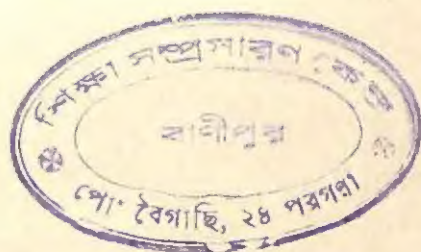 শিক্ষা সম্প্রসারণ কেন্দ্র
বাণীপুর
পো· বৈগাছি, ২৪ পরগণা